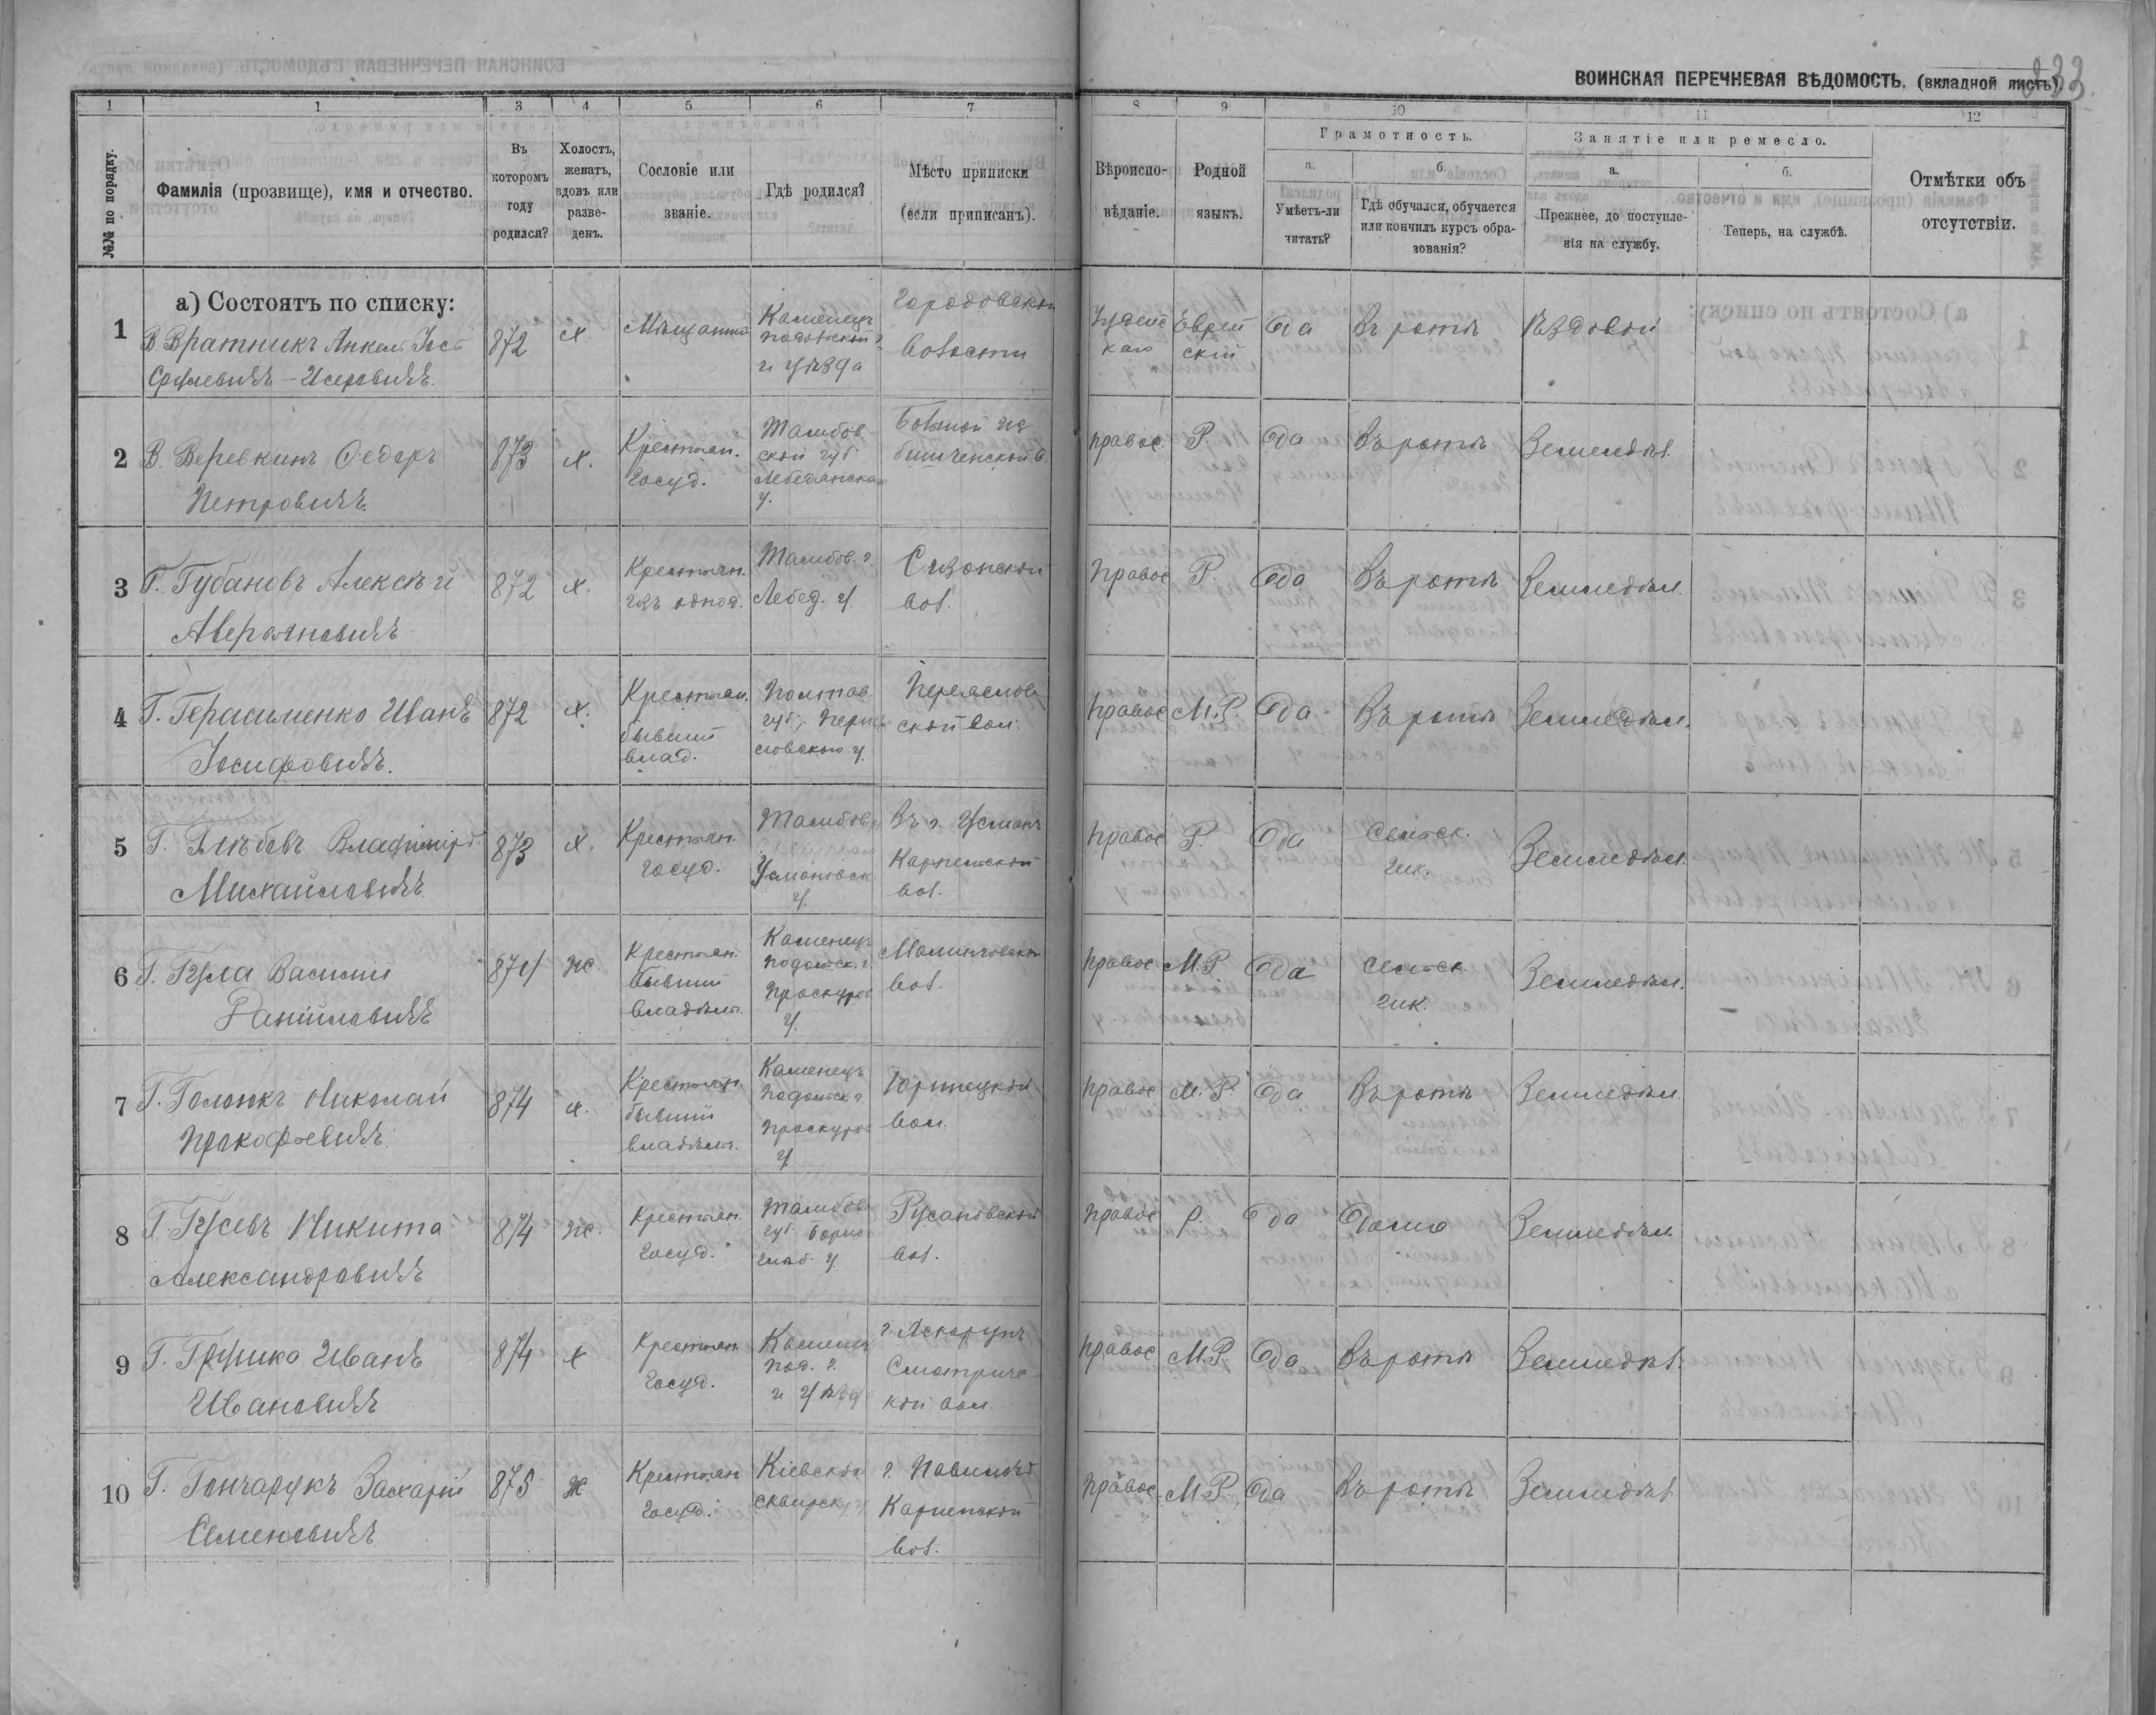 ВОИНСКАЯ ПЕРЕЧНЕВАЯ ВѢДОМОСТЬ, (вкладной листъ).
233
1 1 3 4 5 6 7 8 9 10 11 12
№№ по порядку.
Фамилія (прозвище), имя и отчество.
Въ которомъ году родился?
Холостъ, женатъ, вдовъ или разведенъ.
Сословіе или званіе.
Гдѣ родился?
Мѣсто приписки (если приписанъ).
Вѣроисповѣданіе.
Родной языкъ.
Грамотность.
а. Умѣетъ-ли читать?
б. Гдѣ обучался, обучается или кончилъ курсъ образованія?
Занятіе или ремесло.
а. Прежнее, до поступленія на службу.
б. Теперь, на службѣ.
Отмѣтки объ отсутствіи.
а) Состоятъ по списку:
1 В. Вратникъ 872 х. Каменецъ Подольской г. и уѣзда Городовской волости Еврейскій Да Въ ротѣ
2 В. Веревкинъ Ѳедоръ Петровичъ 873 х. Крестьян. Госуд. Тамбовской губ. Лебедянска у. Правос. Р. Да Въ ротѣ Земледѣл.
3 Г. Губановъ Алексѣй Аверьяновичъ 872 х. Крестьян. Тамбов. г. Лебед. у. вол. Правос. Р. Да Въ ротѣ Земледѣл.
4 Г. Герасименко Иванъ Іосифовичъ. 872 х. Крестьян. бывший влад. Полтав губ. у. вол. Правос. М.Р. Да Въ ротѣ Земледѣл.
5 Г. Глѣбовъ Владиміръ Михайловичъ 873 х. Крестьян. госуд. Тамбов. у. Въ г. Усмань вол. Правос. Р. Да Сельск. Земледѣл.
6 Г. Гула Василій Даниловичъ 874 ж. Крестьян. бывший владѣл. Каменецъ Подольск. г. Проскуров у. вол. Правос. М.Р. Да Сельск. Земледѣл.
7 Г. Николай Прокофьевичъ 874 х. Крестьян. бывший владѣл. Каменецъ Подольск г. Проскуров у. вол. Правос. М.Р. Да Въ ротѣ Земледѣл.
8 Г. Гусевъ Никита Александровичъ 874 ж. Крестьян. госуд. Тамбов губ. Борисоглѣб. у. Русановской вол. Правос. Р. Да Дома Земледѣл.
9 Г. Грушко Иванъ Ивановичъ 874 х Крестьян. госуд. Каменец Под. г. и уѣзд Смотричской вол. Правос. М.Р. Да Въ ротѣ Земледѣл.
10 Г. Гончарукъ Захарій Семеновичъ 875 ж Крестьян. госуд. Кіевской Сквирск. у. вол. Правос. М.Р. Да Въ ротѣ Земледѣл.